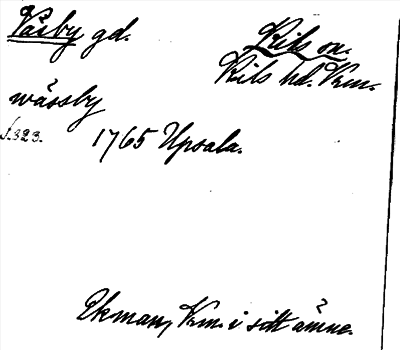 Väsby gd.
Kils sn.
Kils hd. Vrm.
wässby
s. 323.
1765 Upsala.
Ekman, Vrm. i sitt ämne.